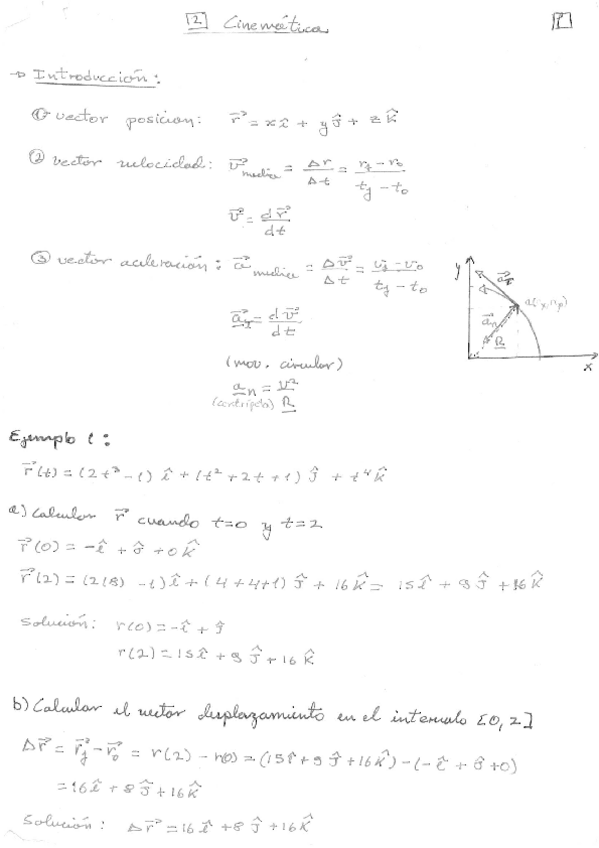 2 Cinemática 1
→ Introducción:
① vector posicion: r⃗ = xî + yĵ + zk̂
② vector velocidad: v⃗ media = Δr/Δt = (r_f − r_0)/(t_f − t_0)
v⃗ = dr⃗/dt
③ vector aceleración: a⃗ media = Δv⃗/Δt = (v_f − v_0)/(t_f − t_0)
a⃗_T = dv⃗/dt
(mov. circular)
a_n = v²/R
(centrípeta)
y
a⃗_n
R
x
Ejemplo 1:
r⃗(t) = (2t³ − 1) î + (t² + 2t + 1) ĵ + t⁴ k̂
a) Calcular r⃗ cuando t=0 y t=2
r⃗(0) = −î + ĵ + 0k̂
r⃗(2) = (2(8) − 1)î + (4+4+1) ĵ + 16k̂ = 15î + 9ĵ + 16k̂
Solución: r(0) = −î + ĵ
r(2) = 15î + 9ĵ + 16k̂
b) Calcular el vector desplazamiento en el intervalo [0, 2]
Δr⃗ = r⃗_f − r⃗_0 = r(2) − r(0) = (15î + 9ĵ + 16k̂) − (−î + ĵ + 0)
= 16î + 8ĵ + 16k̂
Solución: Δr⃗ = 16î + 8ĵ + 16k̂